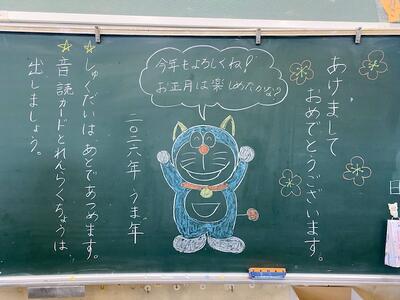 あけまして
おめでとうございます。
今年もよろしくね!
お正月は楽しめたかな?
二〇二六年 うま年
☆しゅくだいは あとであつめます。
☆音読カードとれんらくちょうは
出しましょう。
日